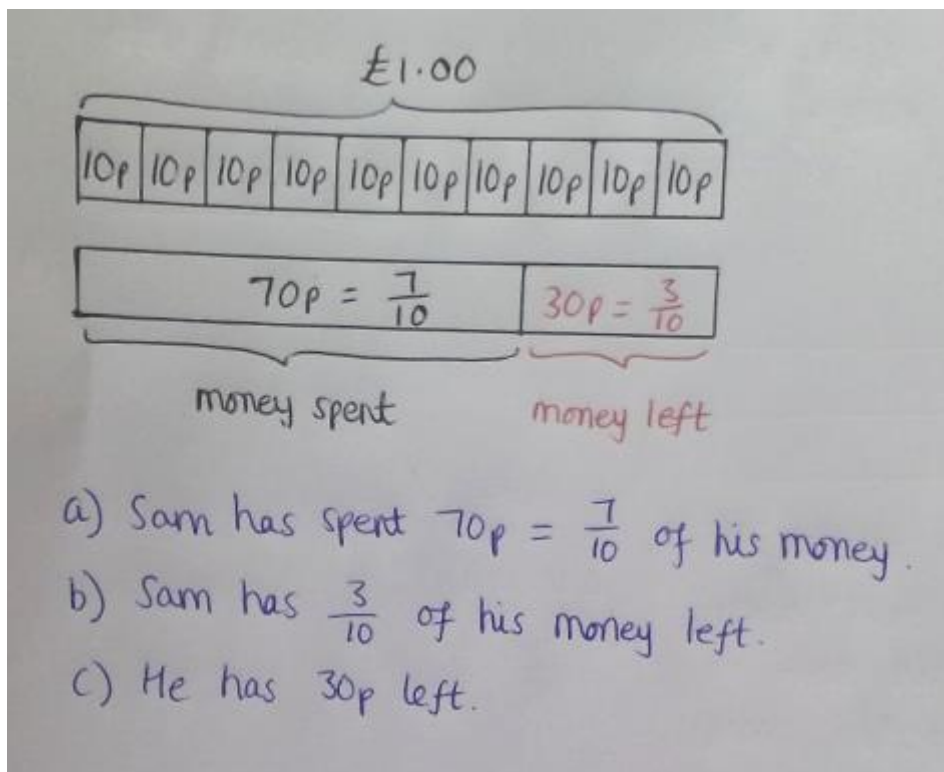 £1.00
10p 10p 10p 10p 10p 10p 10p 10p 10p 10p
70p = 7/10 30p = 3/10
money spent money left
a) Sam has spent 70p = 7/10 of his money.
b) Sam has 3/10 of his money left.
c) He has 30p left.